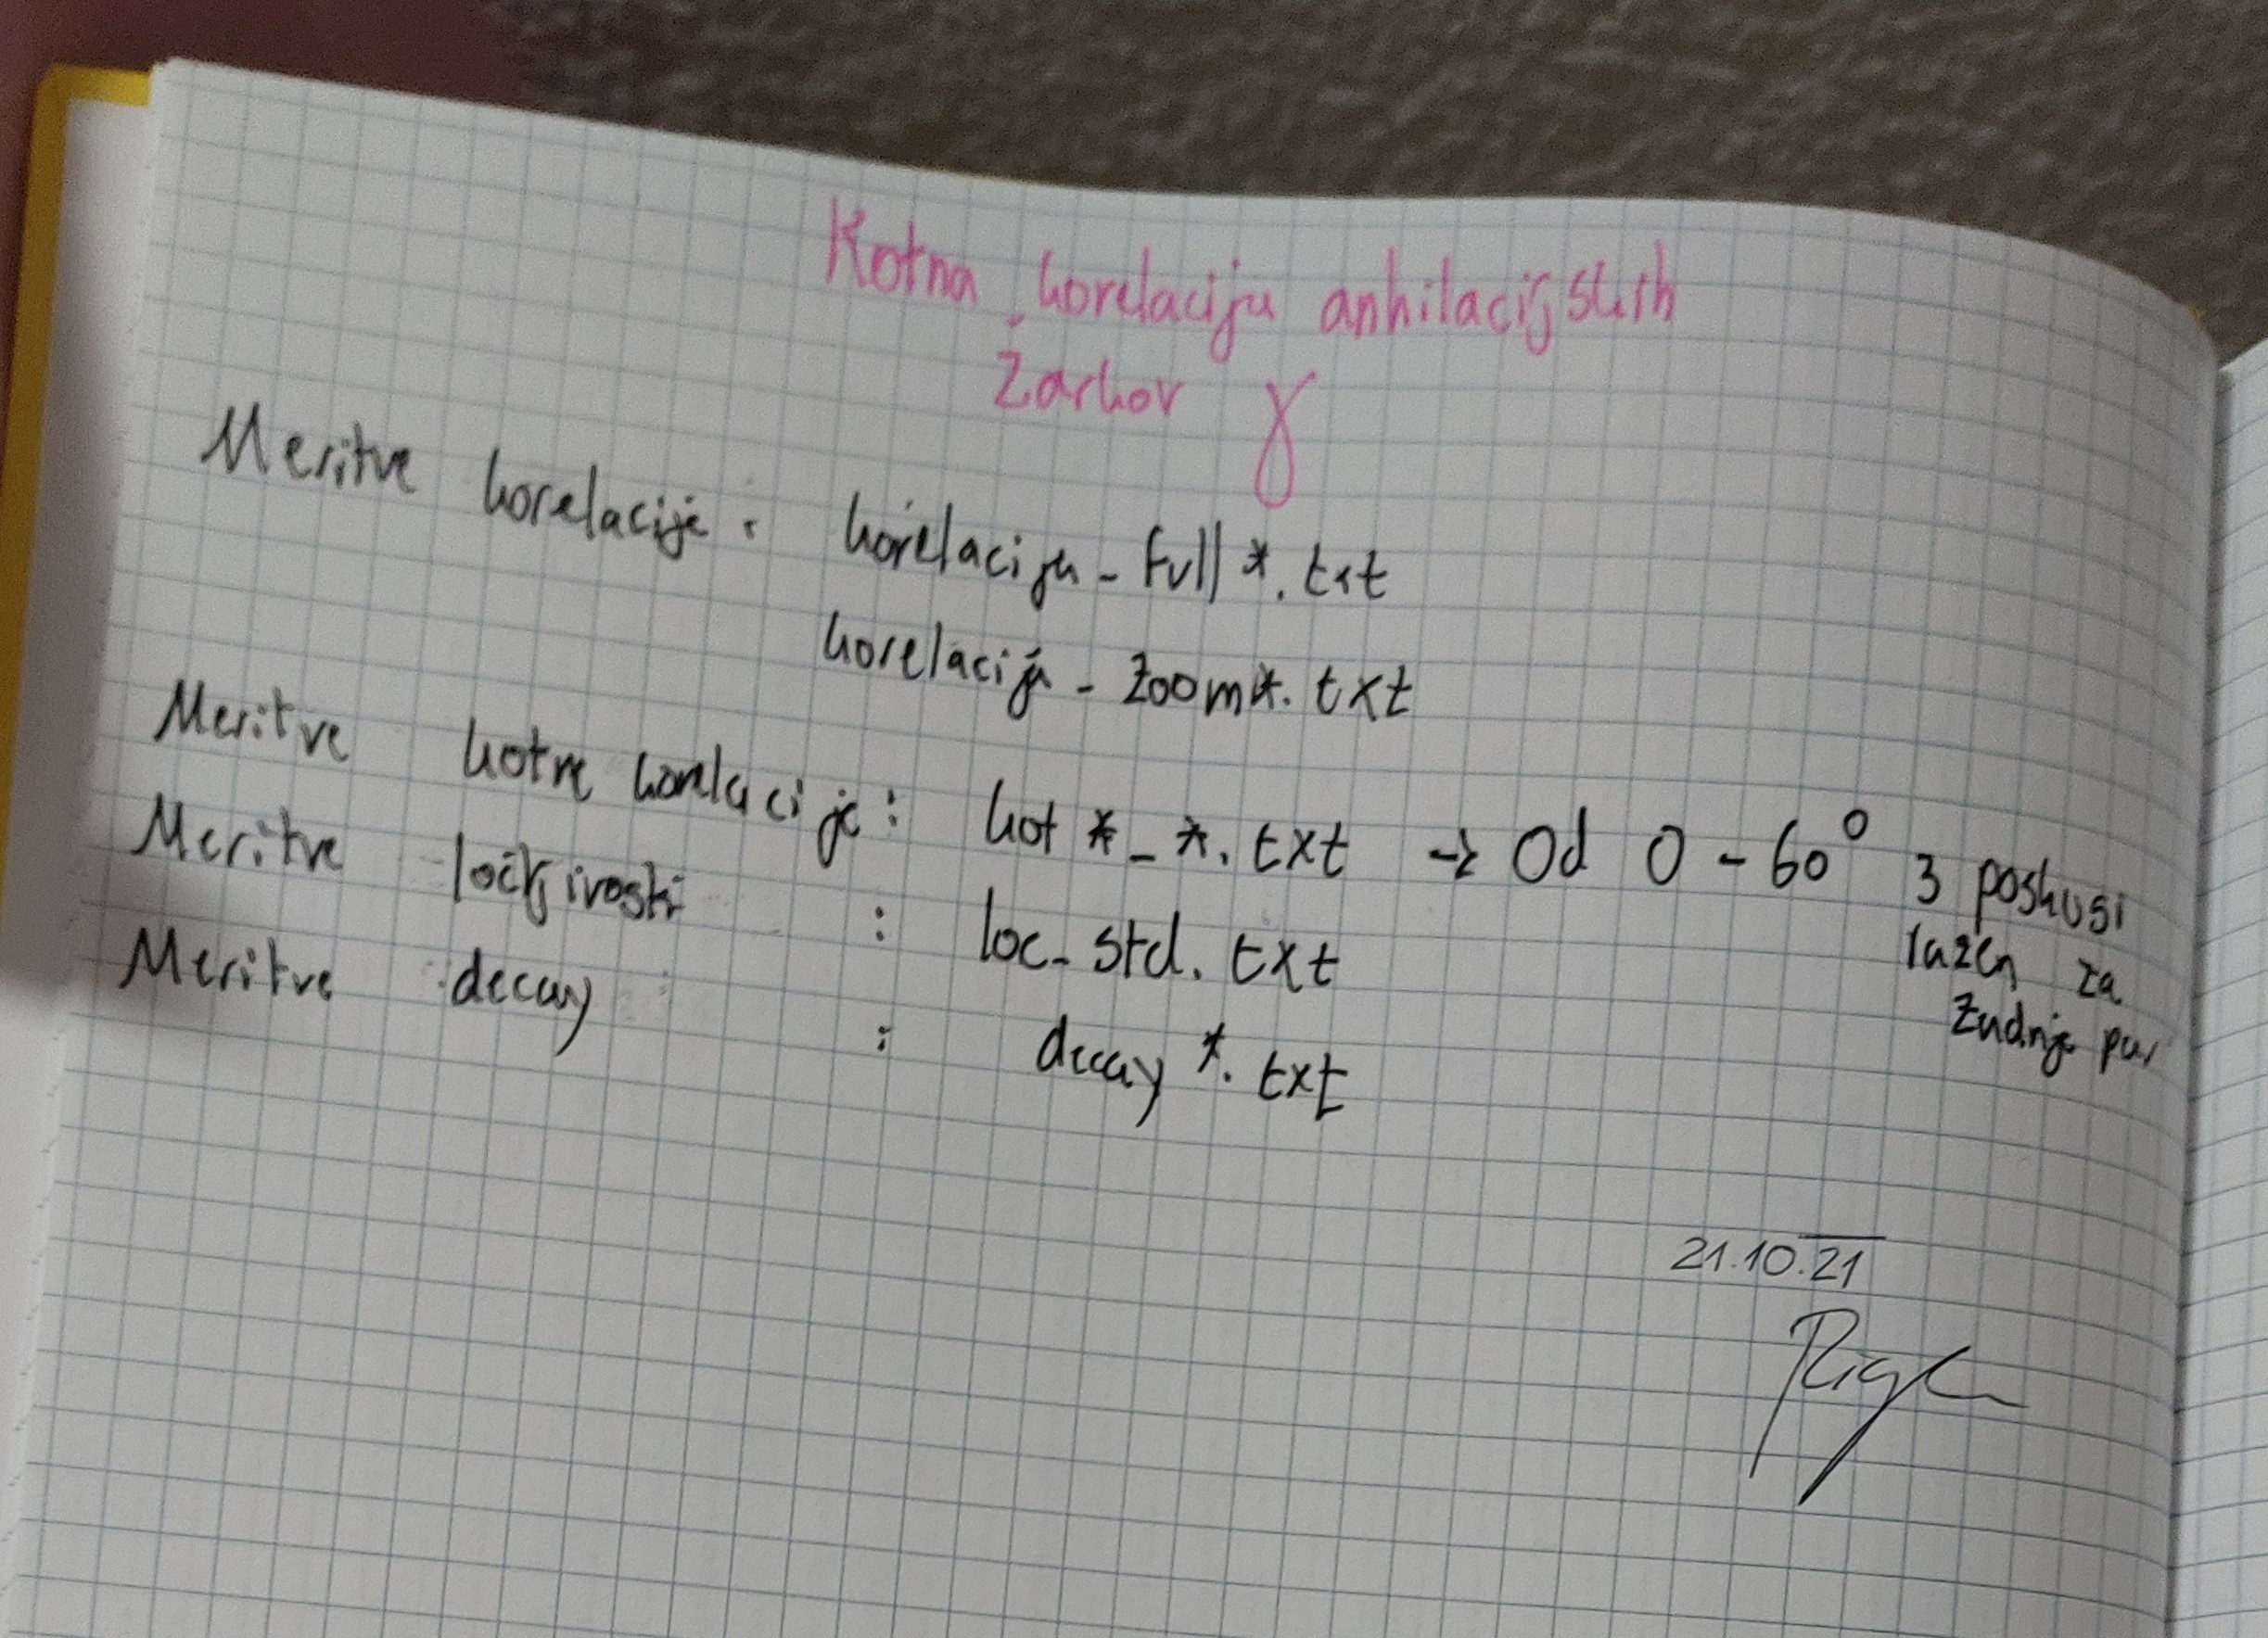 Kotna korelacija anhilacijskih
Žarkov γ
Meritve korelacije: korelacija_full*.txt
korelacija_zoom*.txt
Meritve kotne korelacije: kot*_*.txt → Od 0-60° 3 poskusi
razen za
zadnje par
Meritve ločljivosti : loc_std.txt
Meritve decay : decay*.txt
21.10.21